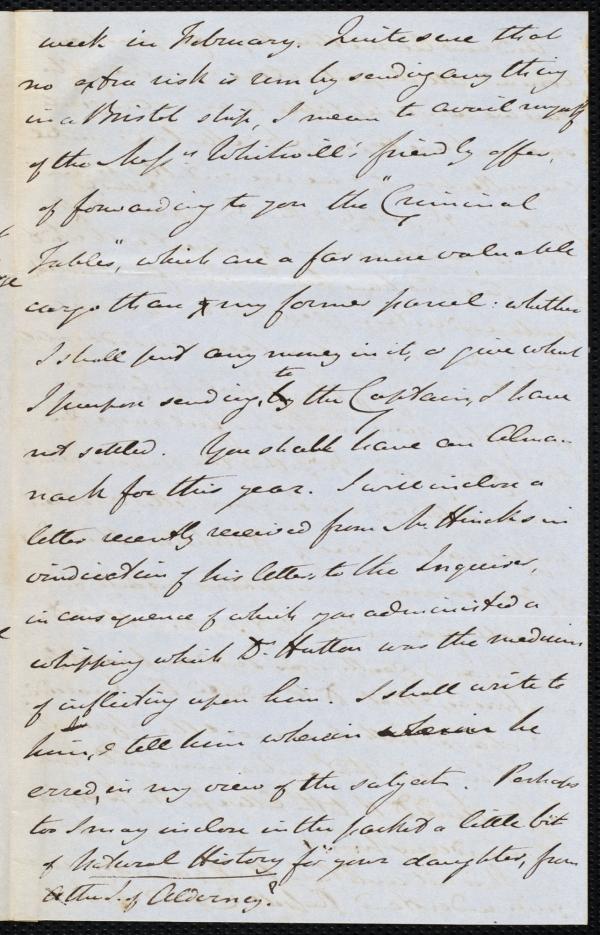 week in February. Quite sure that
no extra risk is run by sending any thing
in a Bristol ship, I mean to avail myself
of the Messrs Whitwill's friendly offer,
of forwarding to you the "Criminal
Tables", which are a far more valuable
cargo than my former parcel: whether
I shall put any money in it, or give what
I purpose sending, to the Captain, I have
not settled. You shall have an Alma-
nack for this year. I will inclose a
letter recently received from Mr Hincks in
vindication of his letters to the Inquirer,
in consequence of which you administered a
whipping which Dr. Hutton was the medium
of inflicting upon him. I shall write to
him, & tell him wherein wherein he
erred, in my view of the subject. Perhaps
too I may inclose in the packet a little bit
of Natural History for your daughter, from
the I. of Alderney.